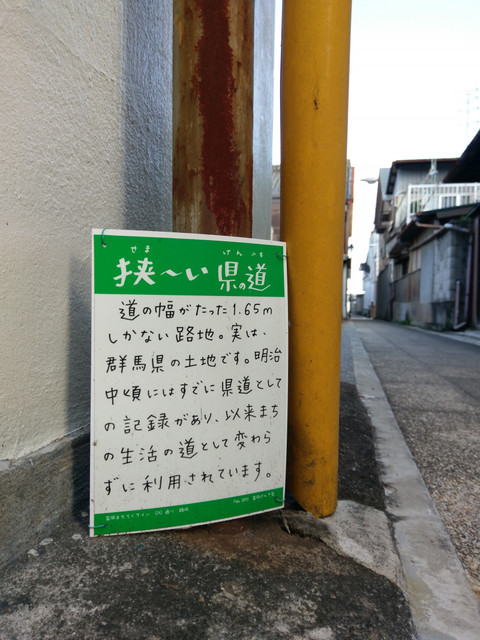 せま けん みち
挟〜い 県の道
道の幅がたった1.65m
しかない路地。実は、
群馬県の土地です。明治
中頃にはすでに県道として
の記録があり、以来まち
の生活の道として変わら
ずに利用されています。